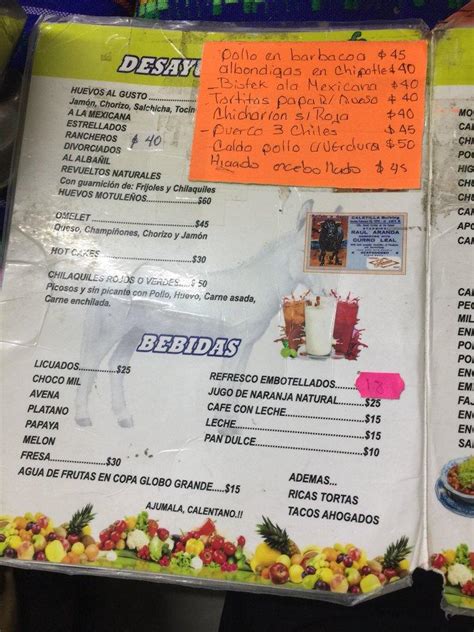 DESAYU
Pollo en barbacoa $45
albondigas en Chipotle $40
Bistek ala Mexicana $40
Tortitas papa y/ queso $40
Chicharon s/ Roja $40
Puerco 3 Chiles $45
Caldo pollo c/verdura $50
Higado encebollado $45
HUEVOS AL GUSTO
Jamón, Chorizo, Salchicha, Tocin
A LA MEXICANA
ESTRELLADOS
RANCHEROS $40
DIVORCIADOS
AL ALBAÑIL
REVUELTOS NATURALES
Con guarnición de: Frijoles y Chilaquiles
HUEVOS MOTULEÑOS $60
OMELET $45
Queso, Champiñones, Chorizo y Jamón
HOT CAKES $30
CHILAQUILES ROJOS O VERDES $50
Picosos y sin picante con Pollo, Huevo, Carne asada,
Carne enchilada.
RAUL ARANDA
CURRO LEAL
BEBIDAS
LICUADOS $25
CHOCO MIL
AVENA
PLATANO
PAPAYA
MELON
FRESA $30
AGUA DE FRUTAS EN COPA GLOBO GRANDE $15
AJUMALA, CALENTANO.!!
REFRESCO EMBOTELLADOS 18
JUGO DE NARANJA NATURAL $25
CAFE CON LECHE $15
LECHE $15
PAN DULCE $10
ADEMAS...
RICAS TORTAS
TACOS AHOGADOS